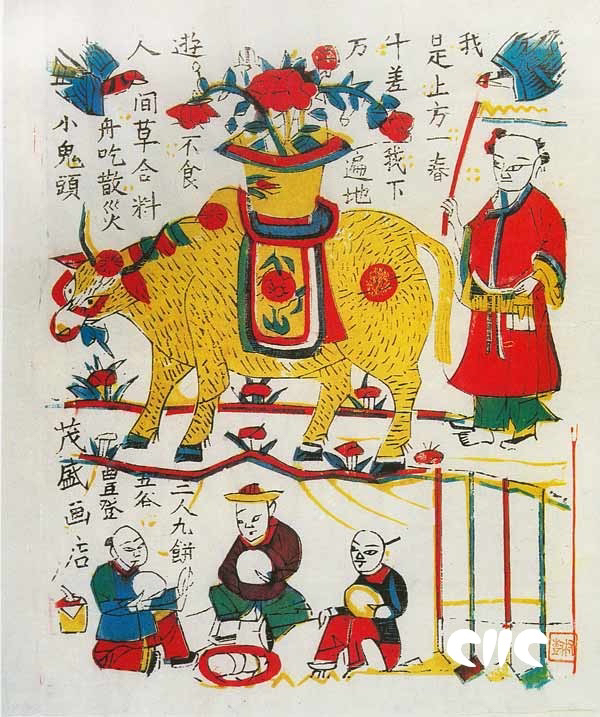 我
是上方一春
牛差我下
万
遍地
遊
不食
人
间草合料
舟吃散災
小鬼頭
三人九餅
五谷
豊登
茂盛画店